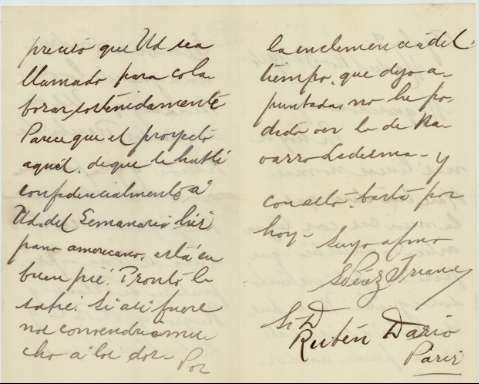 preciso que Ud sea
llamado para cola
borar sostenidamente
Parece que el proyecto
aquél, de que le hablé
confidencialmente á
Ud, del Semanario his
pano americano, está en
buen pié. Pronto lo
sabré. Si así fuere
nos convendría mu
cho á los dos. Por
la inclemencia del
tiempo, que dejo a-
puntada, no he po-
dido ver la de Na-
varro Ledesma - y
con esto, basta por
hoy - Suyo afmo
S Pérez Triana
Sr D
Rubén Darío
París